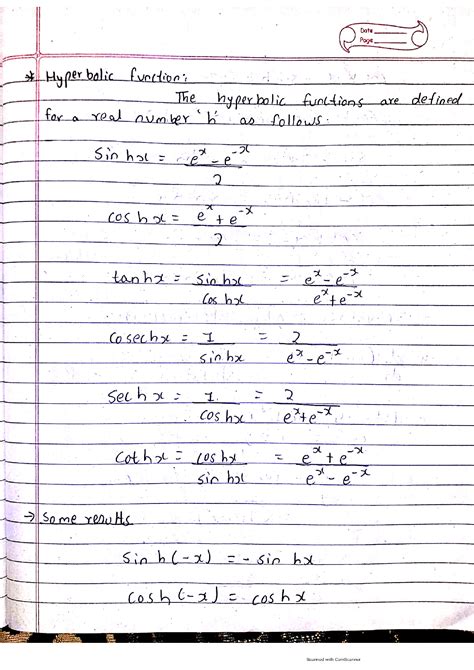 Date
Page
* Hyperbolic function:
The hyperbolic functions are defined
for a real number 'h' as follows.
Sin hx = e^x - e^-x / 2
cos hx = e^x + e^-x / 2
tanhx = sin hx / Cos hx = e^x - e^-x / e^x + e^-x
Cosechx = 1 / sin hx = 2 / e^x - e^-x
Sec hx = 1 / cos hx = 2 / e^x + e^-x
Cot hx = cos hx / sin hx = e^x + e^-x / e^x - e^-x
→ Some results
Sin h(-x) = - sin hx
Cosh (-x) = cos hx
Scanned with CamScanner